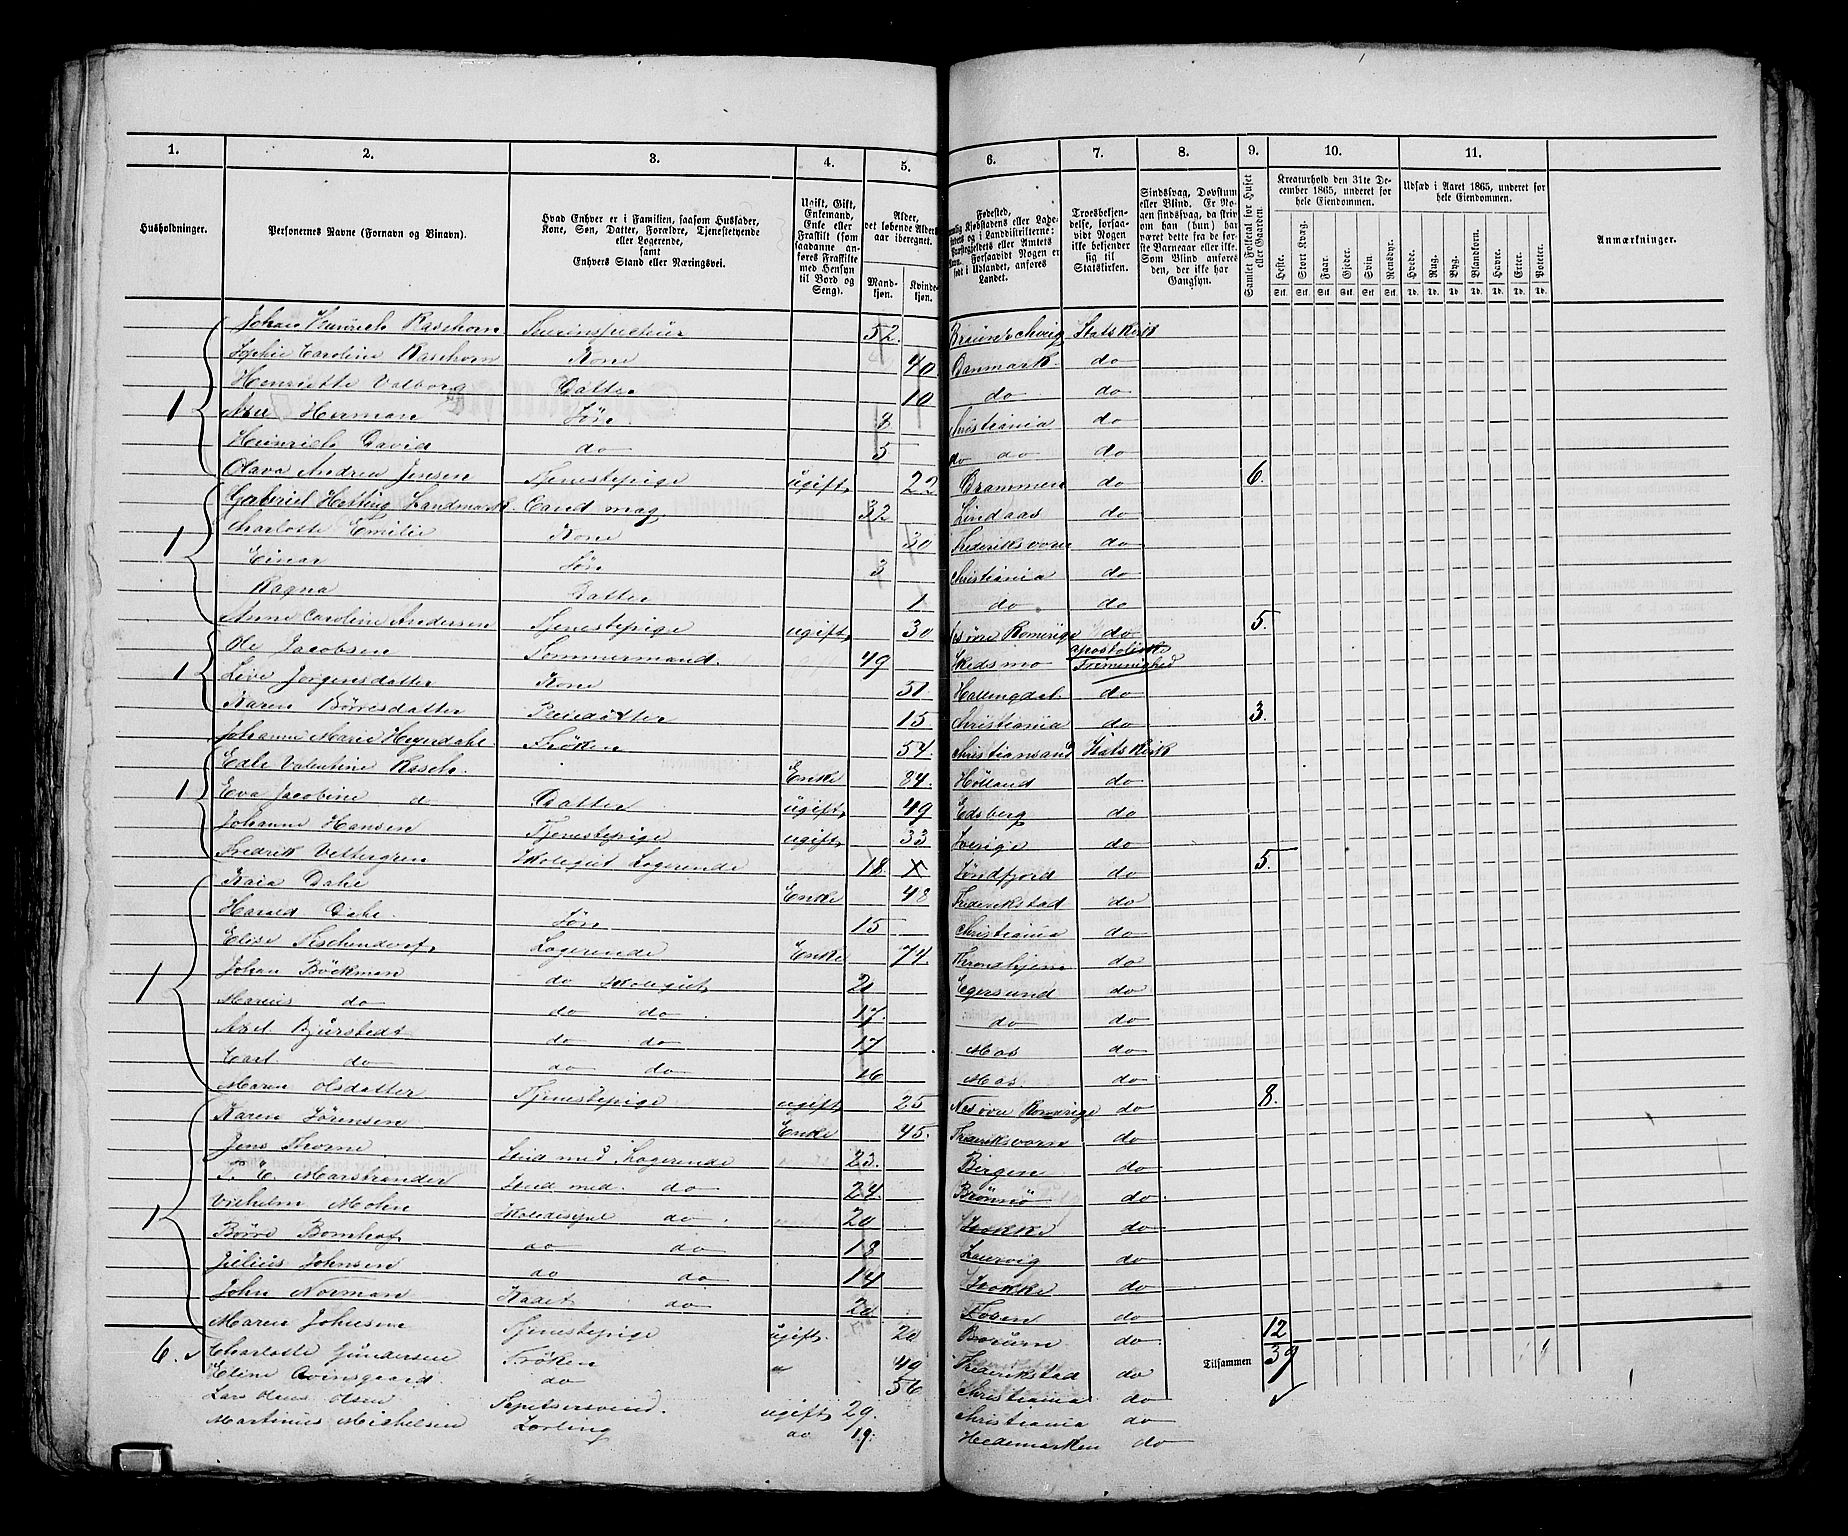 1. 2. 3. 4. 5. 6. 7. 8. 9. 10. 11.
Husholdninger.
Personernes Navne (Fornavn og Binavn).
Hvad Enhver er i Familien, saasom Husfader, Kone, Søn, Datter, Forældre, Tjenestetyende eller Logerende, samt Enhvers Stand eller Næringsvei.
Ugift, Gift, Enkemand, Enke eller Fraskilt (som saadanne anføres Fraskilte med Hensyn til Bord og Seng).
Alder, det løbende Aldersaar iberegnet.
Mandkjøn. Kvindekjøn.
Fødested,
Troesbekjendelse, forsaavidt Nogen ikke bekjender sig til Statskirken.
Sindssvag, Døvstum eller Blind. Er Nogen sindssvag, da skrives om han (hun) har været dette fra de første Barneaar eller ikke. Som Blind anføres den, der ikke har Gangsyn.
Samlet Folketal for Huset eller Gaarden.
Kreaturhold den 31te December 1865, underet for hele Eiendommen.
Heste. Stort Kvæg. Faar. Gjeder. Svin. Rensdyr.
Udsæd i Aaret 1865, underet for hele Eiendommen.
Hvede. Rug. Byg. Blandkorn. Havre. Erter. Poteter.
Anmærkninger.
Johan Heinrich Rasehorn 52. Braunschvig Statskirk
1 Sophie Caroline Rasehorn Kone 40 Danmark do
Henriette Valborg Datter 10 do do
Axel Herman Søn 8 Christiania do
Heinrich David do 5 do do do
Olava Andrea Jensen Tjenestepige ugift 22 Drammen do 6.
1 Gabriel Landmark Cand mag 32 Lindaas do
Charlotte Emilie Kone 30 Frederiksværn do
Einar Søn 3 Christiania do
Ragna Datter 1 do do
Anne Caroline Andersen Tjenestepige ugift 30 Nes øvre Romerige do 5.
1 Ole Jacobsen Tømmermand. 49 Skedsmo Apostoliske Fremenighed
Live Jørgensdatter Kone 51. Hallingdal do
Karen Børresdatter Pleiedatter 15 Christiania do 3.
1 Johanne Marie Heyerdahl Frøken 54. Christiansand Statskirk
Edle Valentine Rasch. Enke 84. Høland do
Eva Jacobine do Datter ugift 49 Edsberg do
Johanne Hansen Tjenestepige ugift 33 Sverige do
Fredrik Vettergren Skolegut Logerende 18. Søndfjord do 5.
1 Kaia Dahl Enke 48 Frederikstad do
Harald Dahl Søn 15 Christiania do
Elise Tischendorf Logerende Enke 74. Throndhjem do
Johan Bøckman do Skolegut 21 Egersund do
Marius do do do 17. do do
Axel Bjurstedt do do 17 Mos do
Carl do do do 16 Mos do
Maren Olsdatter Tjenestepige ugift 25 Nes øvre Romerige do 8.
1 Karen Sørensen Enke 45. Frederiksværn do
Jens Thorne Stud med Logerende 23. Bergen do
F. E. Marstrander Stud med. do 24. Brønnø do
Vilhelm Mohn do 20 do
Børre Bomhof do do 18 Laurvig do
Julius Johnsen do do 14 do
John Norman Kadet do 20 Fosen do
Maren Johnsen Tjenestepige ugift. 20 Bærum do 12
6. Charlotte Gundersen Frøken " 49 Frederikstad do Tilsammen 39
Eline do 56 Christiania do
Lars Olsen ugift 29. Christiania do
Martinus Mickelsen Lærling do 19. Hedemarken do